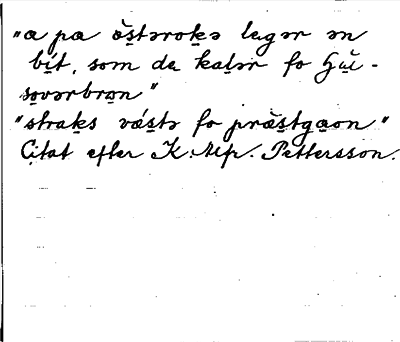 "a pa ö̀s̱tərok̠ə leg̠ər ən
bi̠t, som de kal̠ər fo Gu̠-
so̠vərbro̠n"
"strak̠s vé̠s̱tə fo prä̀s̱tga̠on"
Citat efter K. Alfr. Pettersson.